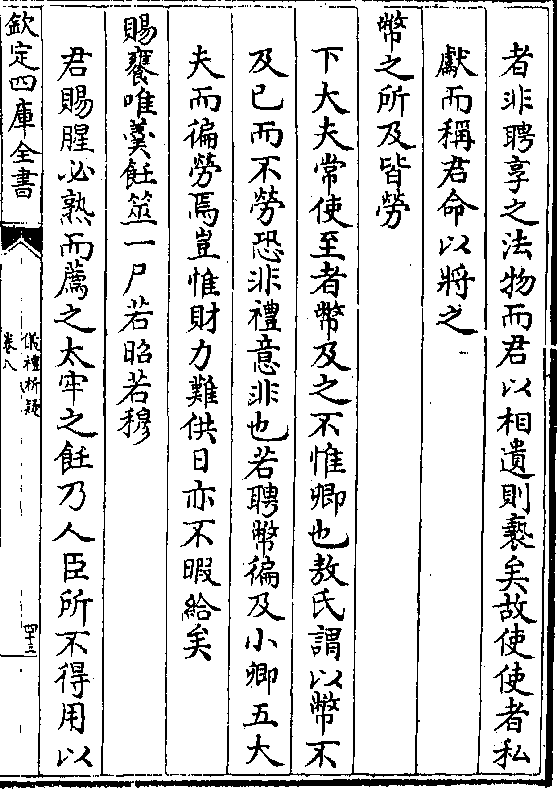 者非聘享之法物而君以相遺則褻矣故使使者私
獻而稱君命以將之
幣之所及皆勞
下大夫常使至者幣及之不惟卿也敖氏謂以幣不
及已而不勞恐非禮意非也若聘幣徧及小卿五大
夫而徧勞焉豈惟財力難供日亦不暇給矣
賜饔唯羹飪筮一尸若昭若穆
君賜腥必熟而薦之太牢之飪乃人臣所不得用以
欽定四庫全書
儀禮析疑
卷八
四十三